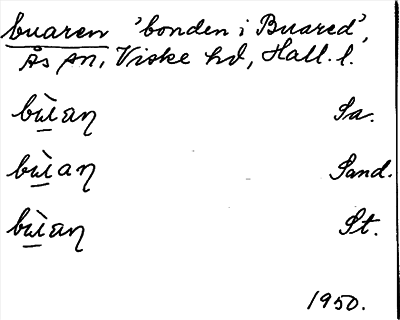 buaren 'bonden i Buared',
Ås sn, Viske hd, Hall. l.
bùan Sa.
bùan Sand.
bùan St.
1950.